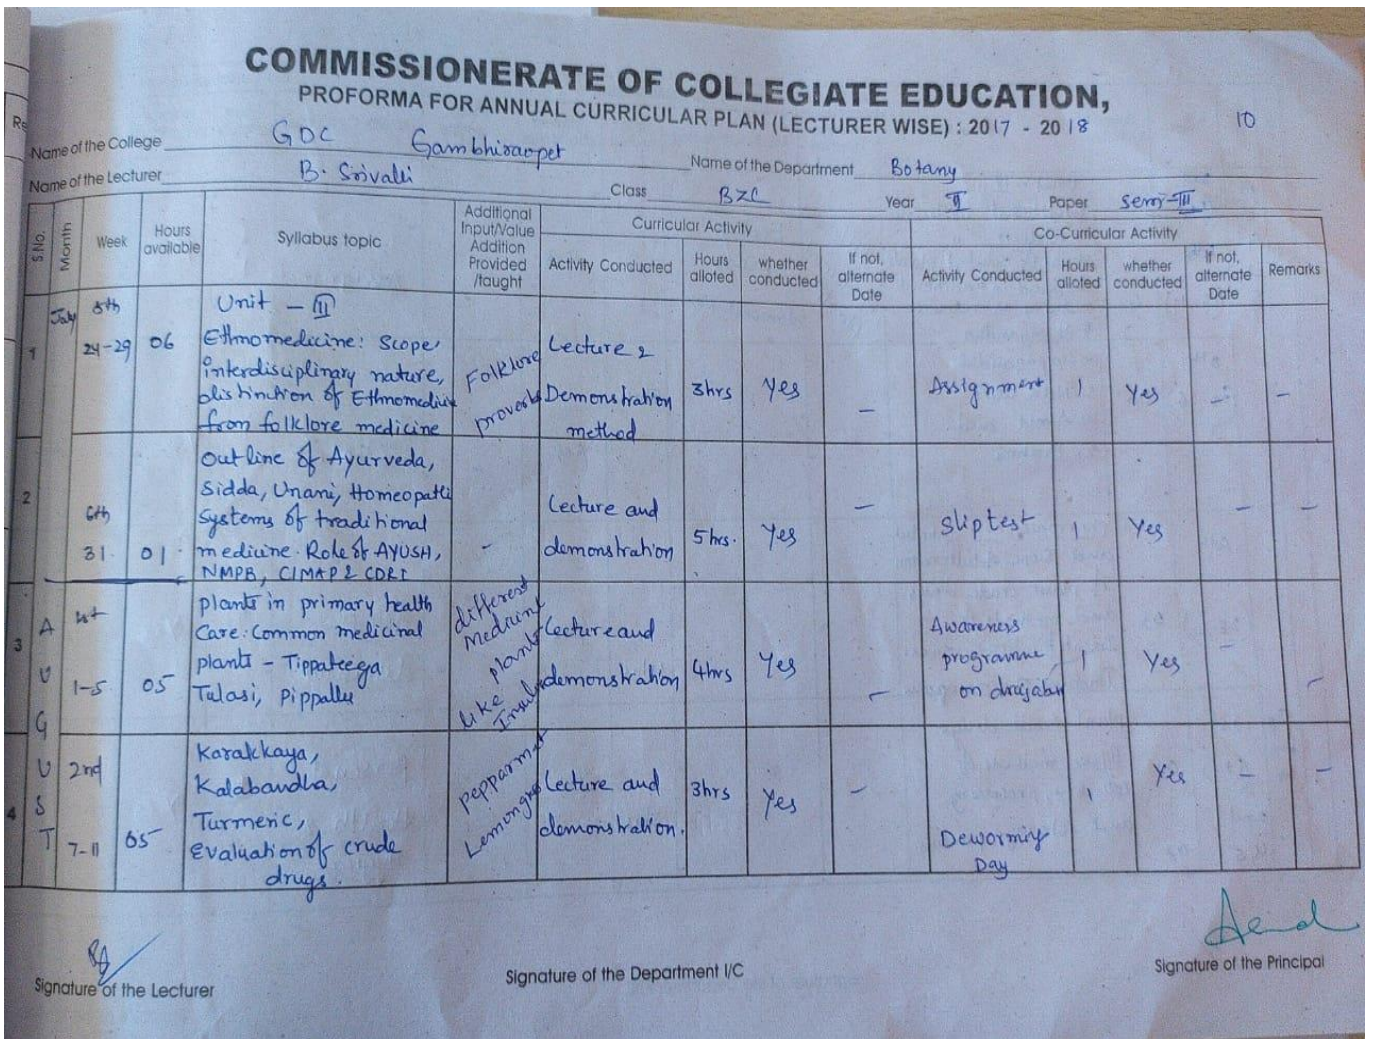 COMMISSIONERATE OF COLLEGIATE EDUCATION,
PROFORMA FOR ANNUAL CURRICULAR PLAN (LECTURER WISE) : 2017 - 2018
10
Re
Name of the College GDC Gambhiraopet Name of the Department Botany
Name of the Lecturer B. Srivalli Class BZC Year II Paper Sem-III
S.No. Month Week Hours available Syllabus topic Additional Input/Value Addition Provided /taught Curricular Activity Co-Curricular Activity
Activity Conducted Hours alloted whether conducted If not, alternate Date Activity Conducted Hours alloted whether conducted If not, alternate Date Remarks
1 July 5th 24-29 06
Unit - III
Ethnomedicine: Scope,
interdisciplinary nature,
distinction of Ethnomedicine
from folklore medicine
Folklore
proverbs
Lecture &
Demonstration
method
3hrs Yes - Assignment 1 Yes - -
2 6th 31. 01.
Outline of Ayurveda,
Sidda, Unani, Homeopathi
Systems of traditional
medicine. Role of AYUSH,
NMPB, CIMAP & CDRI
-
Lecture and
demonstration
5hrs. Yes - Slip test 1 Yes - -
3 AUGUST 1st 1-5 05
plants in primary health
Care: Common medicinal
plants - Tippateega
Tulasi, Pippallu
different
medicine
plants
like
Lecture and
demonstration
4hrs Yes -
Awareness
programme
on
1 Yes - -
4 2nd 7-11 05
Karakkaya,
Kalabandha,
Turmeric,
Evaluation of crude
drugs.
pepparmet
Lecture and
demonstration.
3hrs Yes -
Deworming
Day
1 Yes - -
Signature of the Lecturer
Signature of the Department I/C
Signature of the Principal